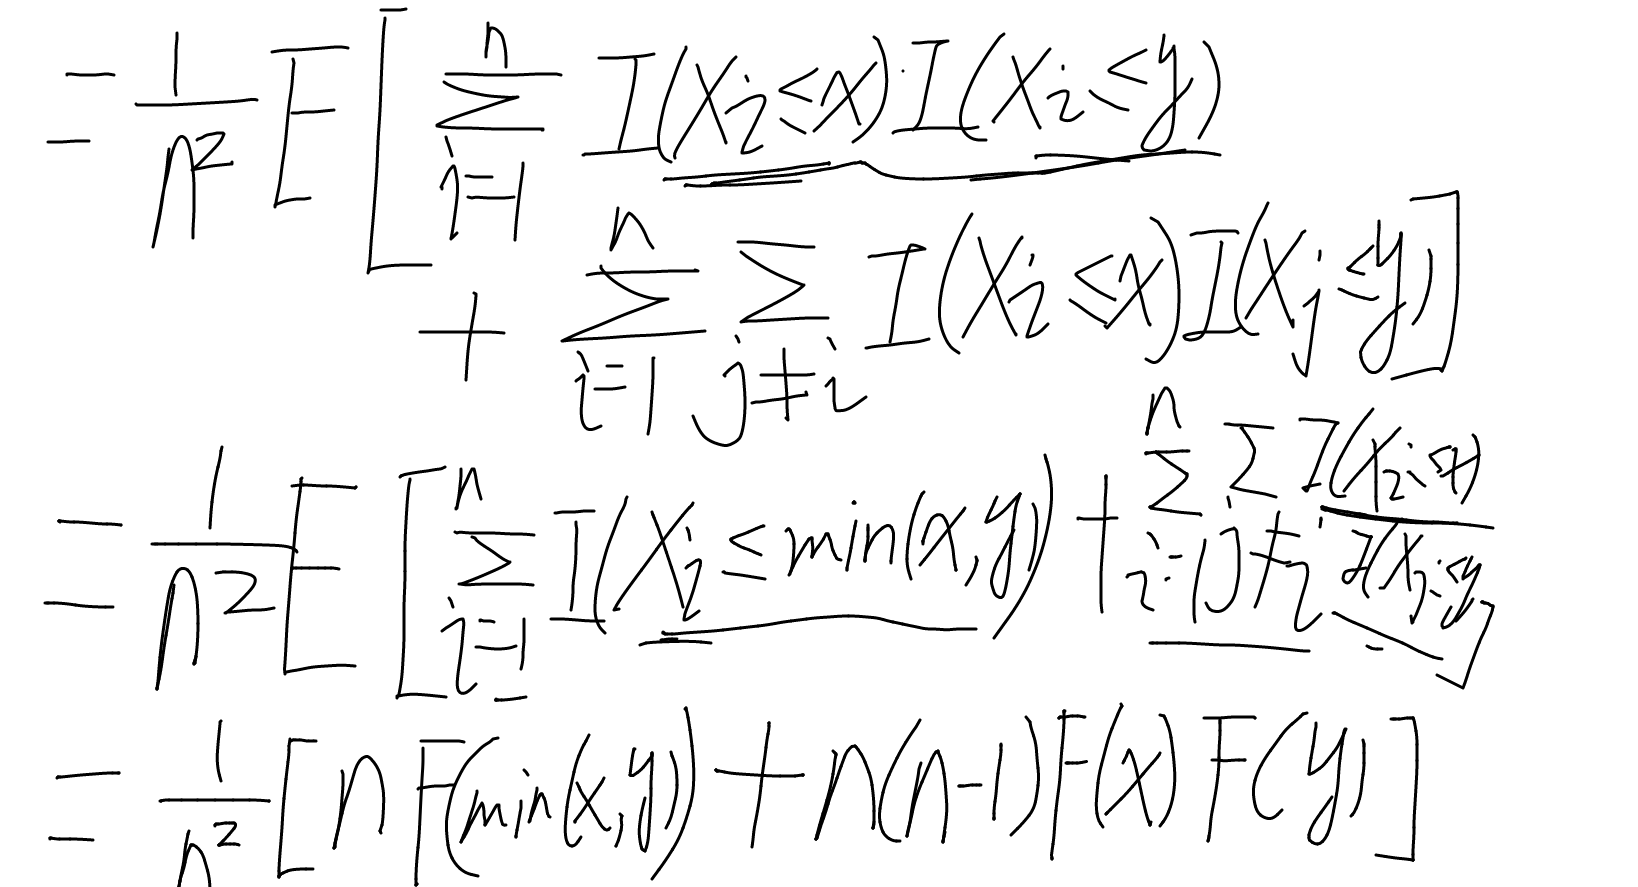 = 1/n² E[ ∑_{i=1}^{n} I(X_i ≤ x) I(X_i ≤ y)
+ ∑_{i=1}^{n} ∑_{j≠i} I(X_i ≤ x) I(X_j ≤ y) ]
= 1/n² E[ ∑_{i=1}^{n} I(X_i ≤ min(x,y)) + ∑_{i=1}^{n} ∑_{j≠i} I(X_i ≤ x) I(X_j ≤ y ]
= 1/n² [ n F(min(x,y)) + n(n-1) F(x) F(y) ]